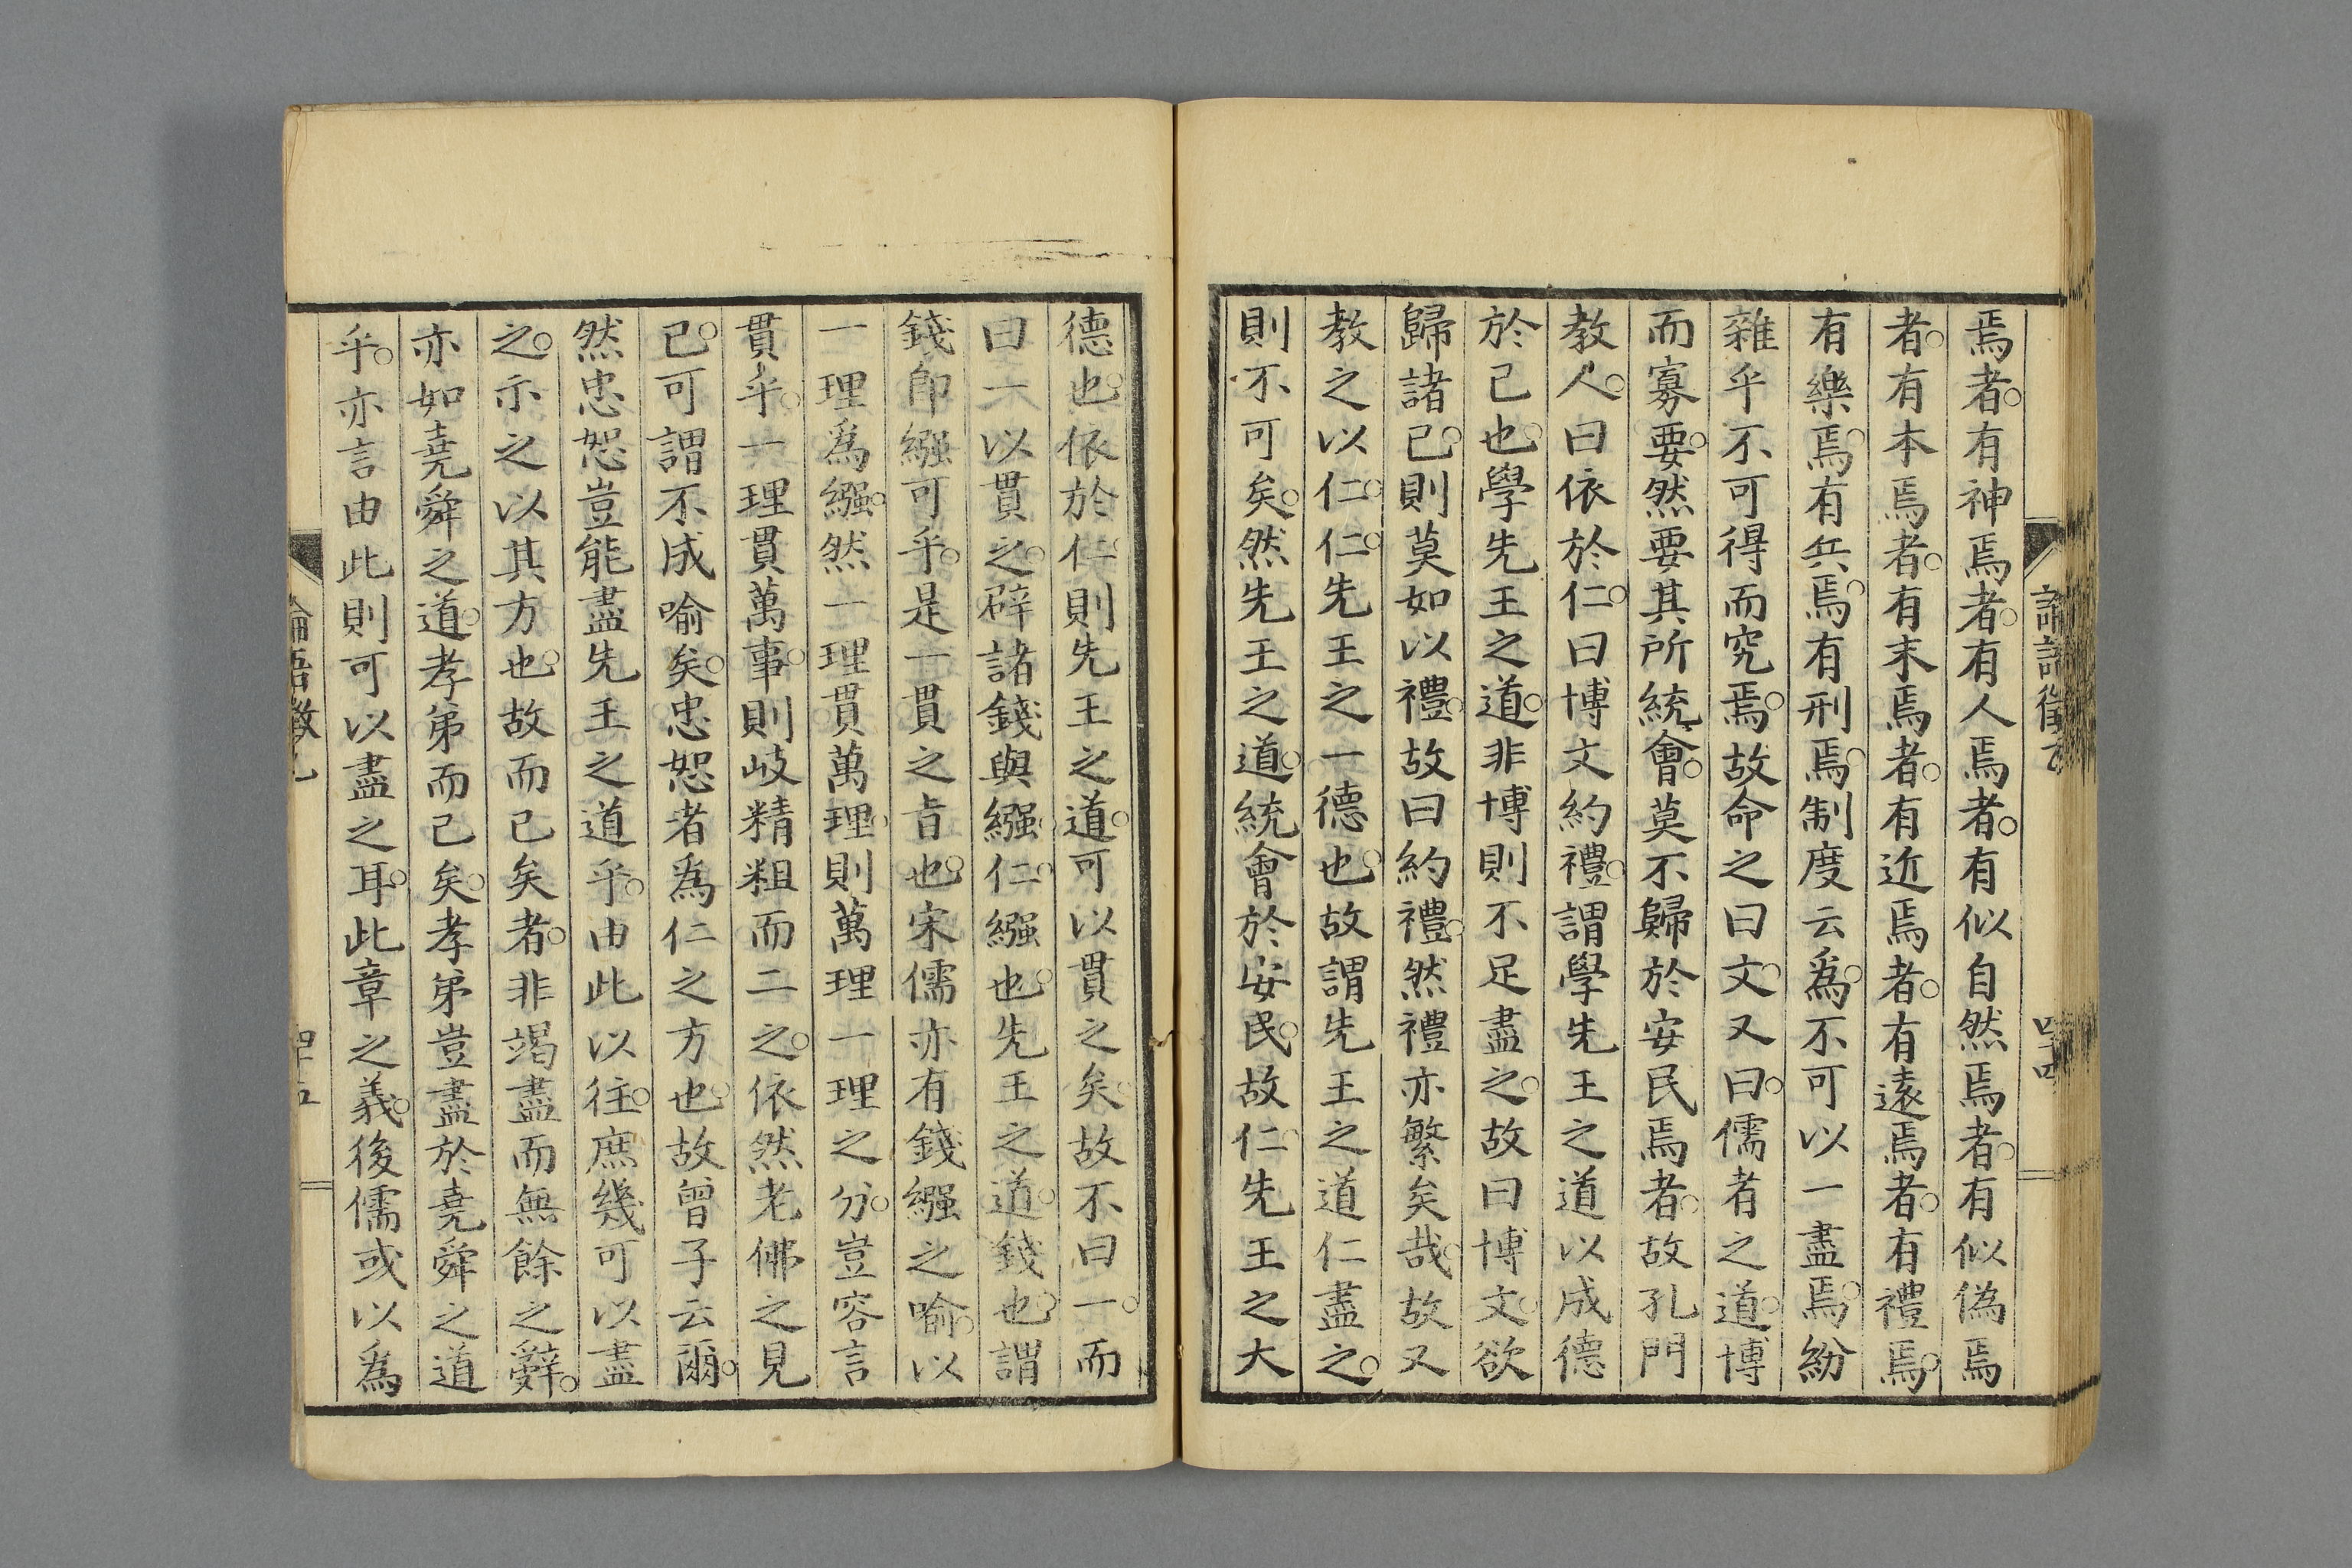 焉者。有神焉者。有人焉者。有似自然焉者。有似偽焉
者。有本焉者。有末焉者。有近焉者。有遠焉者。有禮焉。
有樂焉。有兵焉。有刑焉。制度云爲。不可以一盡焉。紛
雜乎不可得而究焉。故命之曰文。又曰。儒者之道。博
而寡要。然要其所統會。莫不歸於安民焉者。故孔門
教人。曰依於仁。曰博文約禮。謂學先王之道以成德
於己也。學先王之道。非博則不足盡之。故曰博文。欲
歸諸己。則莫如以禮。故曰約禮。然禮亦繁矣哉。故又
教之以仁。仁。先王之一德也。故謂先王之道仁盡之。
則不可矣。然先王之道。統會於安民。故仁先王之大
德也。依於仁。則先王之道。可以貫之矣。故不曰一。而
曰一以貫之。辟諸錢與繦。仁。繦也。先王之道。錢也。謂
錢卽繦可乎。是一貫之旨也。宋儒亦有錢繦之喻。以
一理爲繦。然一理貫萬理。則萬理一理之分。豈容言
貫乎。一理貫萬事。則岐精粗而二之。依然老佛之見
已。可謂不成喻矣。忠恕者爲仁之方也。故曾子云爾。
然忠恕豈能盡先王之道乎。由此以往。庶幾可以盡
之。示之以其方也。故而已矣者。非竭盡而無餘之辭。
亦如堯舜之道。孝弟而已矣。孝弟豈盡於堯舜之道
乎。亦言由此則可以盡之耳。此章之義。後儒或以爲
四十五